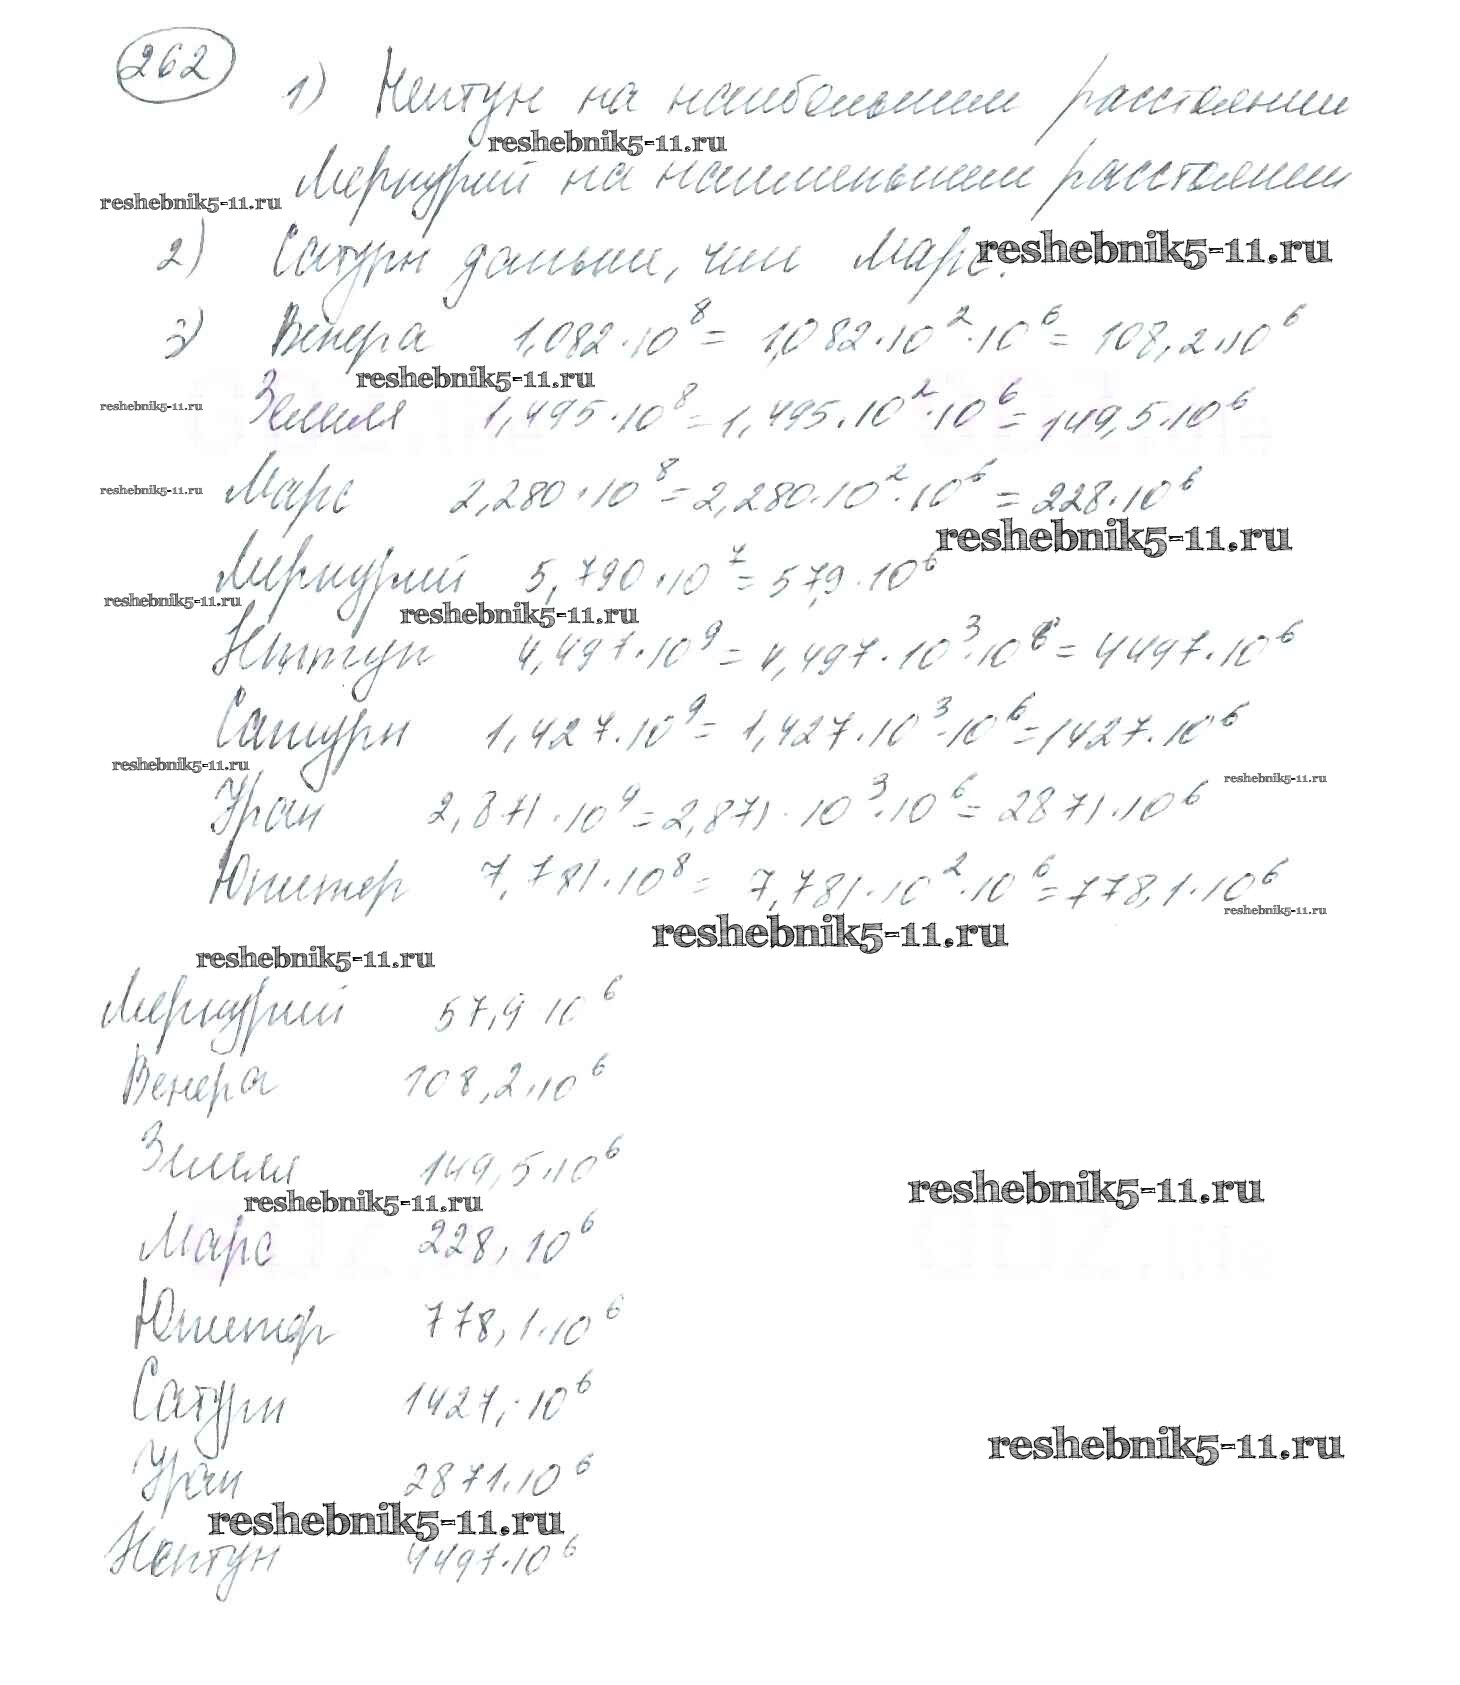 262
1) Нептун на наибольшем расстоянии
reshebnik5-11.ru
Меркурий на наименьшем расстоянии
reshebnik5-11.ru
2) Сатурн дальше, чем Марс.
reshebnik5-11.ru
3) Венера 1,082·10⁸ = 1,082·10²·10⁶ = 108,2·10⁶
reshebnik5-11.ru
Земля 1,495·10⁸ = 1,495·10²·10⁶ = 149,5·10⁶
reshebnik5-11.ru
Марс 2,280·10⁸ = 2,280·10²·10⁶ = 228·10⁶
reshebnik5-11.ru
reshebnik5-11.ru
Меркурий 5,790·10⁷ = 57,9·10⁶
reshebnik5-11.ru
reshebnik5-11.ru
Нептун 4,497·10⁹ = 4,497·10³·10⁶ = 4497·10⁶
Сатурн 1,427·10⁹ = 1,427·10³·10⁶ = 1427·10⁶
reshebnik5-11.ru
reshebnik5-11.ru
Уран 2,871·10⁹ = 2,871·10³·10⁶ = 2871·10⁶
Юпитер 7,781·10⁸ = 7,781·10²·10⁶ = 778,1·10⁶
reshebnik5-11.ru
reshebnik5-11.ru
reshebnik5-11.ru
Меркурий 57,9·10⁶
Венера 108,2·10⁶
Земля 149,5·10⁶
reshebnik5-11.ru
reshebnik5-11.ru
Марс 228,10⁶
Юпитер 778,1·10⁶
Сатурн 1427,·10⁶
reshebnik5-11.ru
Уран 2871·10⁶
reshebnik5-11.ru
Нептун 4497·10⁶